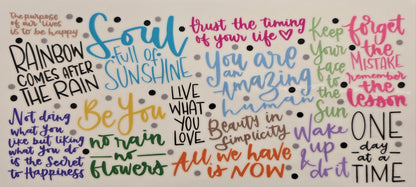 the purpose
of our lives
is to be happy
RAINBOW
COMES AFTER
THE RAIN
Soul
full OF
SUNSHINE
trust the timing
of your life
you are
an
amazing
human
Keep
Your
face to
the
Sun
forget
the
MISTAKE
remember
the
lesson
Not doing
what You
like but liking
what You do
is the Secret
to Happiness
Be You
no rain
no
flowers
LIVE
WHAT
YOU
LOVE
Beauty in
Simplicity
All we have
is NOW
Wake
up
& do it
ONE
day
AT A
TIME